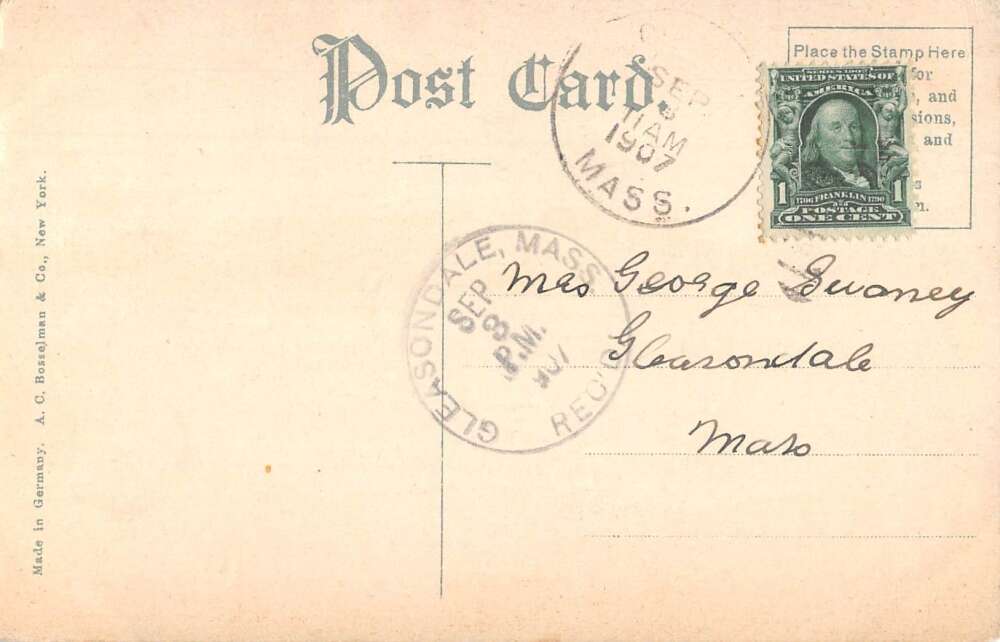 Post Card.
Place the Stamp Here
for
and
sions,
and
SERIES 1902
UNITED STATES OF
AMERICA
1 1
1706 FRANKLIN 1790
POSTAGE
ONE CENT
SEP
11AM
1907
MASS.
GLEASONDALE, MASS.
SEP
8
P.M.
REC'D
Mrs George Swaney
Gleasondale
Mass
Made in Germany. A. C. Bosselman & Co., New York.